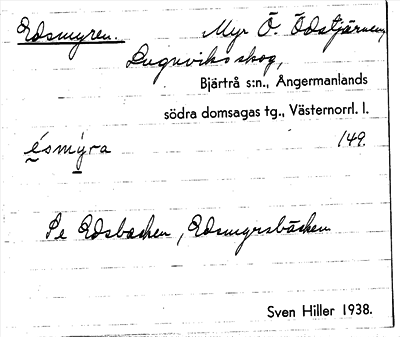 Edsmyren. Myr Ö. Ödstjärnen
Lugnviks skog,
Bjärtrå s:n., Ångermanlands
södra domsagas tg., Västernorrl. l.
ésmýra 149.
Se Edsbacken, Edsmyrsbäcken
Sven Hiller 1938.